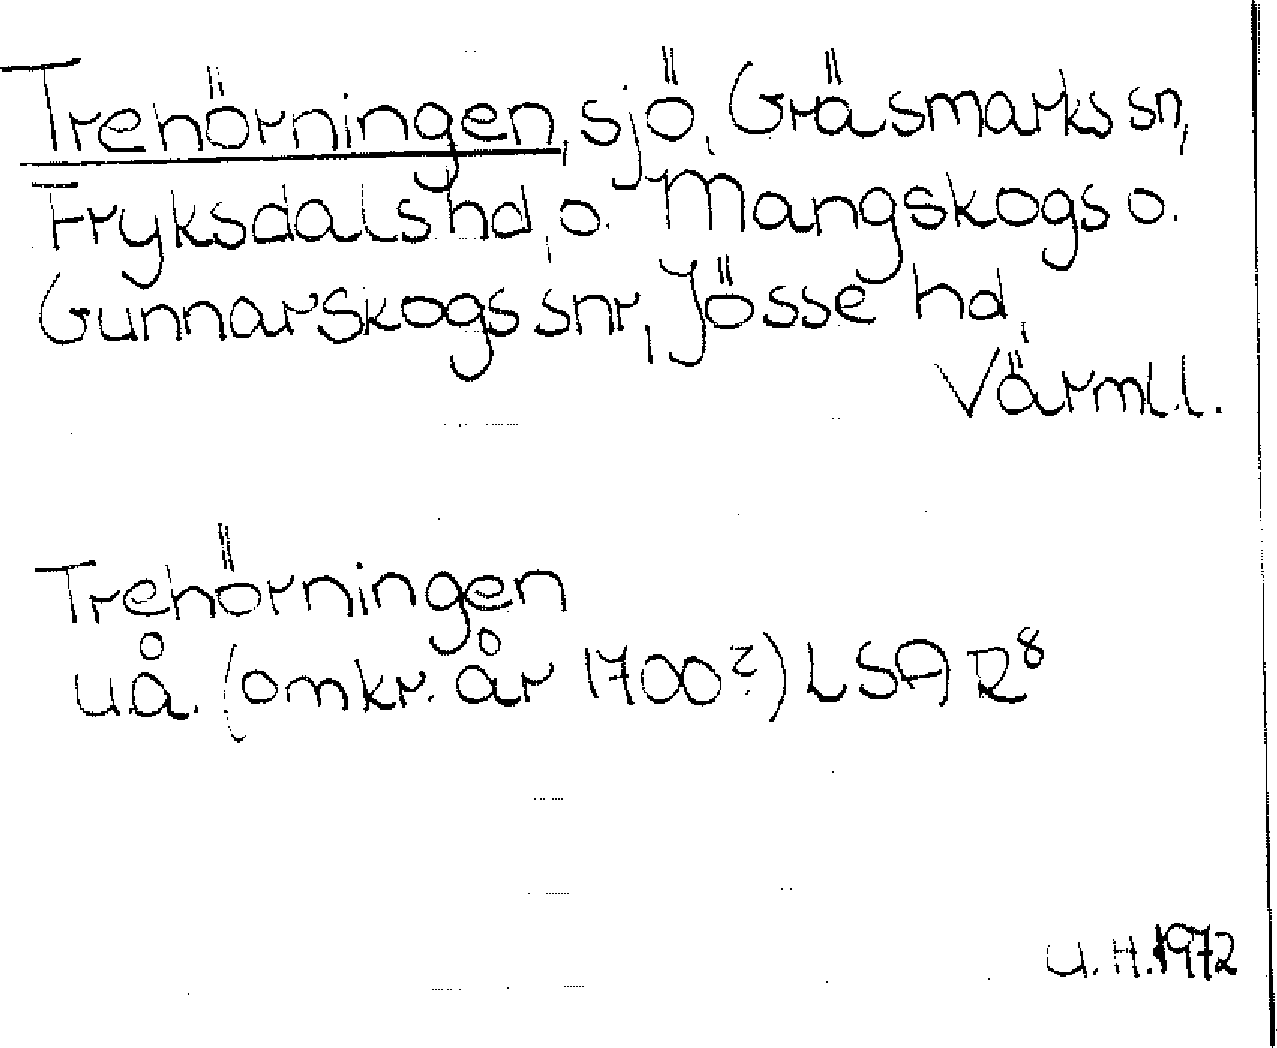 Trehörningen, sjö, Gräsmarks sn,
Fryksdals hd, o. Mangskogs o.
Gunnarskogs snr, Jösse hd,
Värml.l.
Trehörningen
u.å. (omkr. år 1700?) LSA R⁸
U.H. 1972